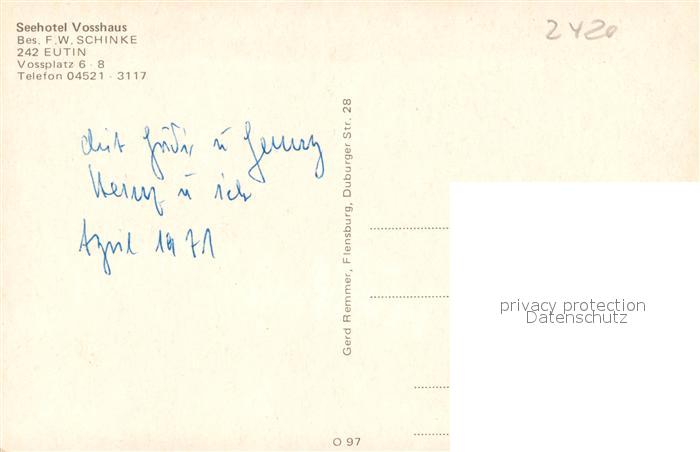 Seehotel Vosshaus
Bes. F.W. SCHINKE
242 EUTIN
Vossplatz 6 - 8
Telefon 04521 - 3117
2420
mit u
Heinz u ich
April 1971
Gerd Remmer, Flensburg, Duburger Str. 28
privacy protection
Datenschutz
O 97